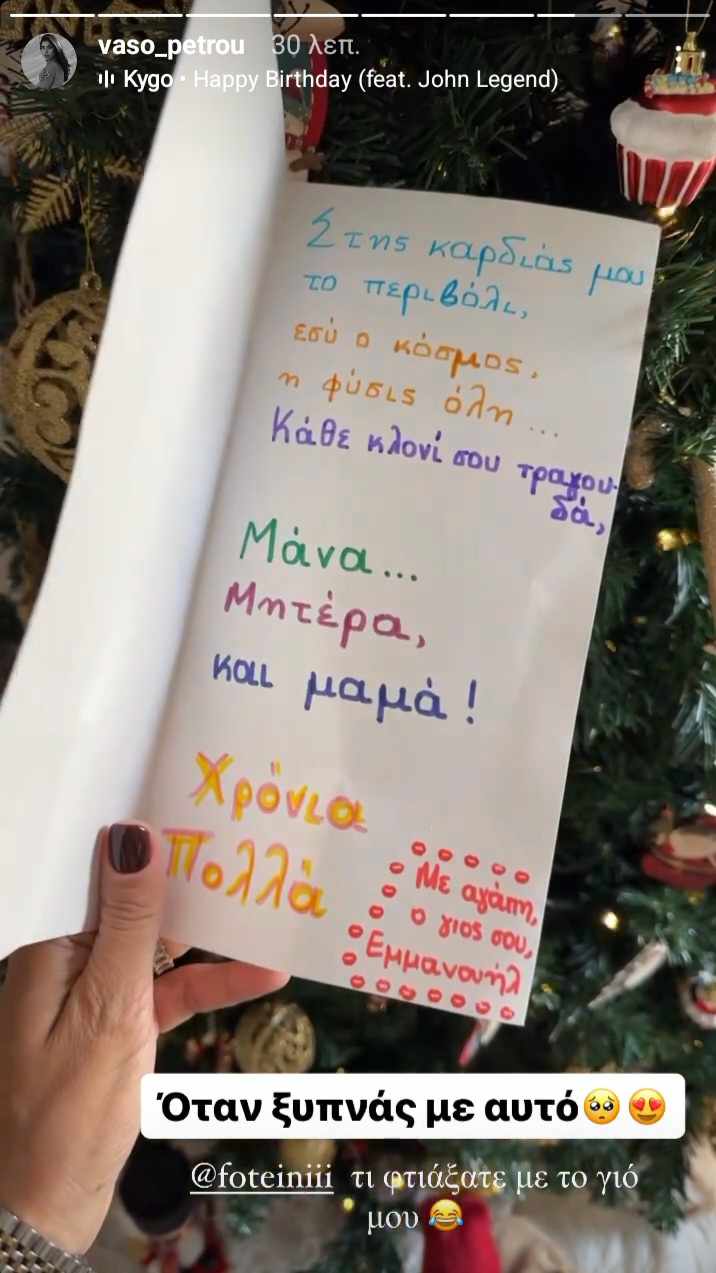 vaso_petrou 30 λεπ.
Kygo • Happy Birthday (feat. John Legend)
Στης καρδιάς μου
το περιβόλι,
εσύ ο κόσμος,
η φύσις όλη...
Κάθε κλονί σου τραγου-
δά,
Μάνα...
Μητέρα,
και μαμά!
Χρόνια
Πολλά
Με αγάπη,
ο γιος σου,
Εμμανουήλ
Όταν ξυπνάς με αυτό🥺😍
@foteiniii τι φτιάξατε με το γιό
μου😂